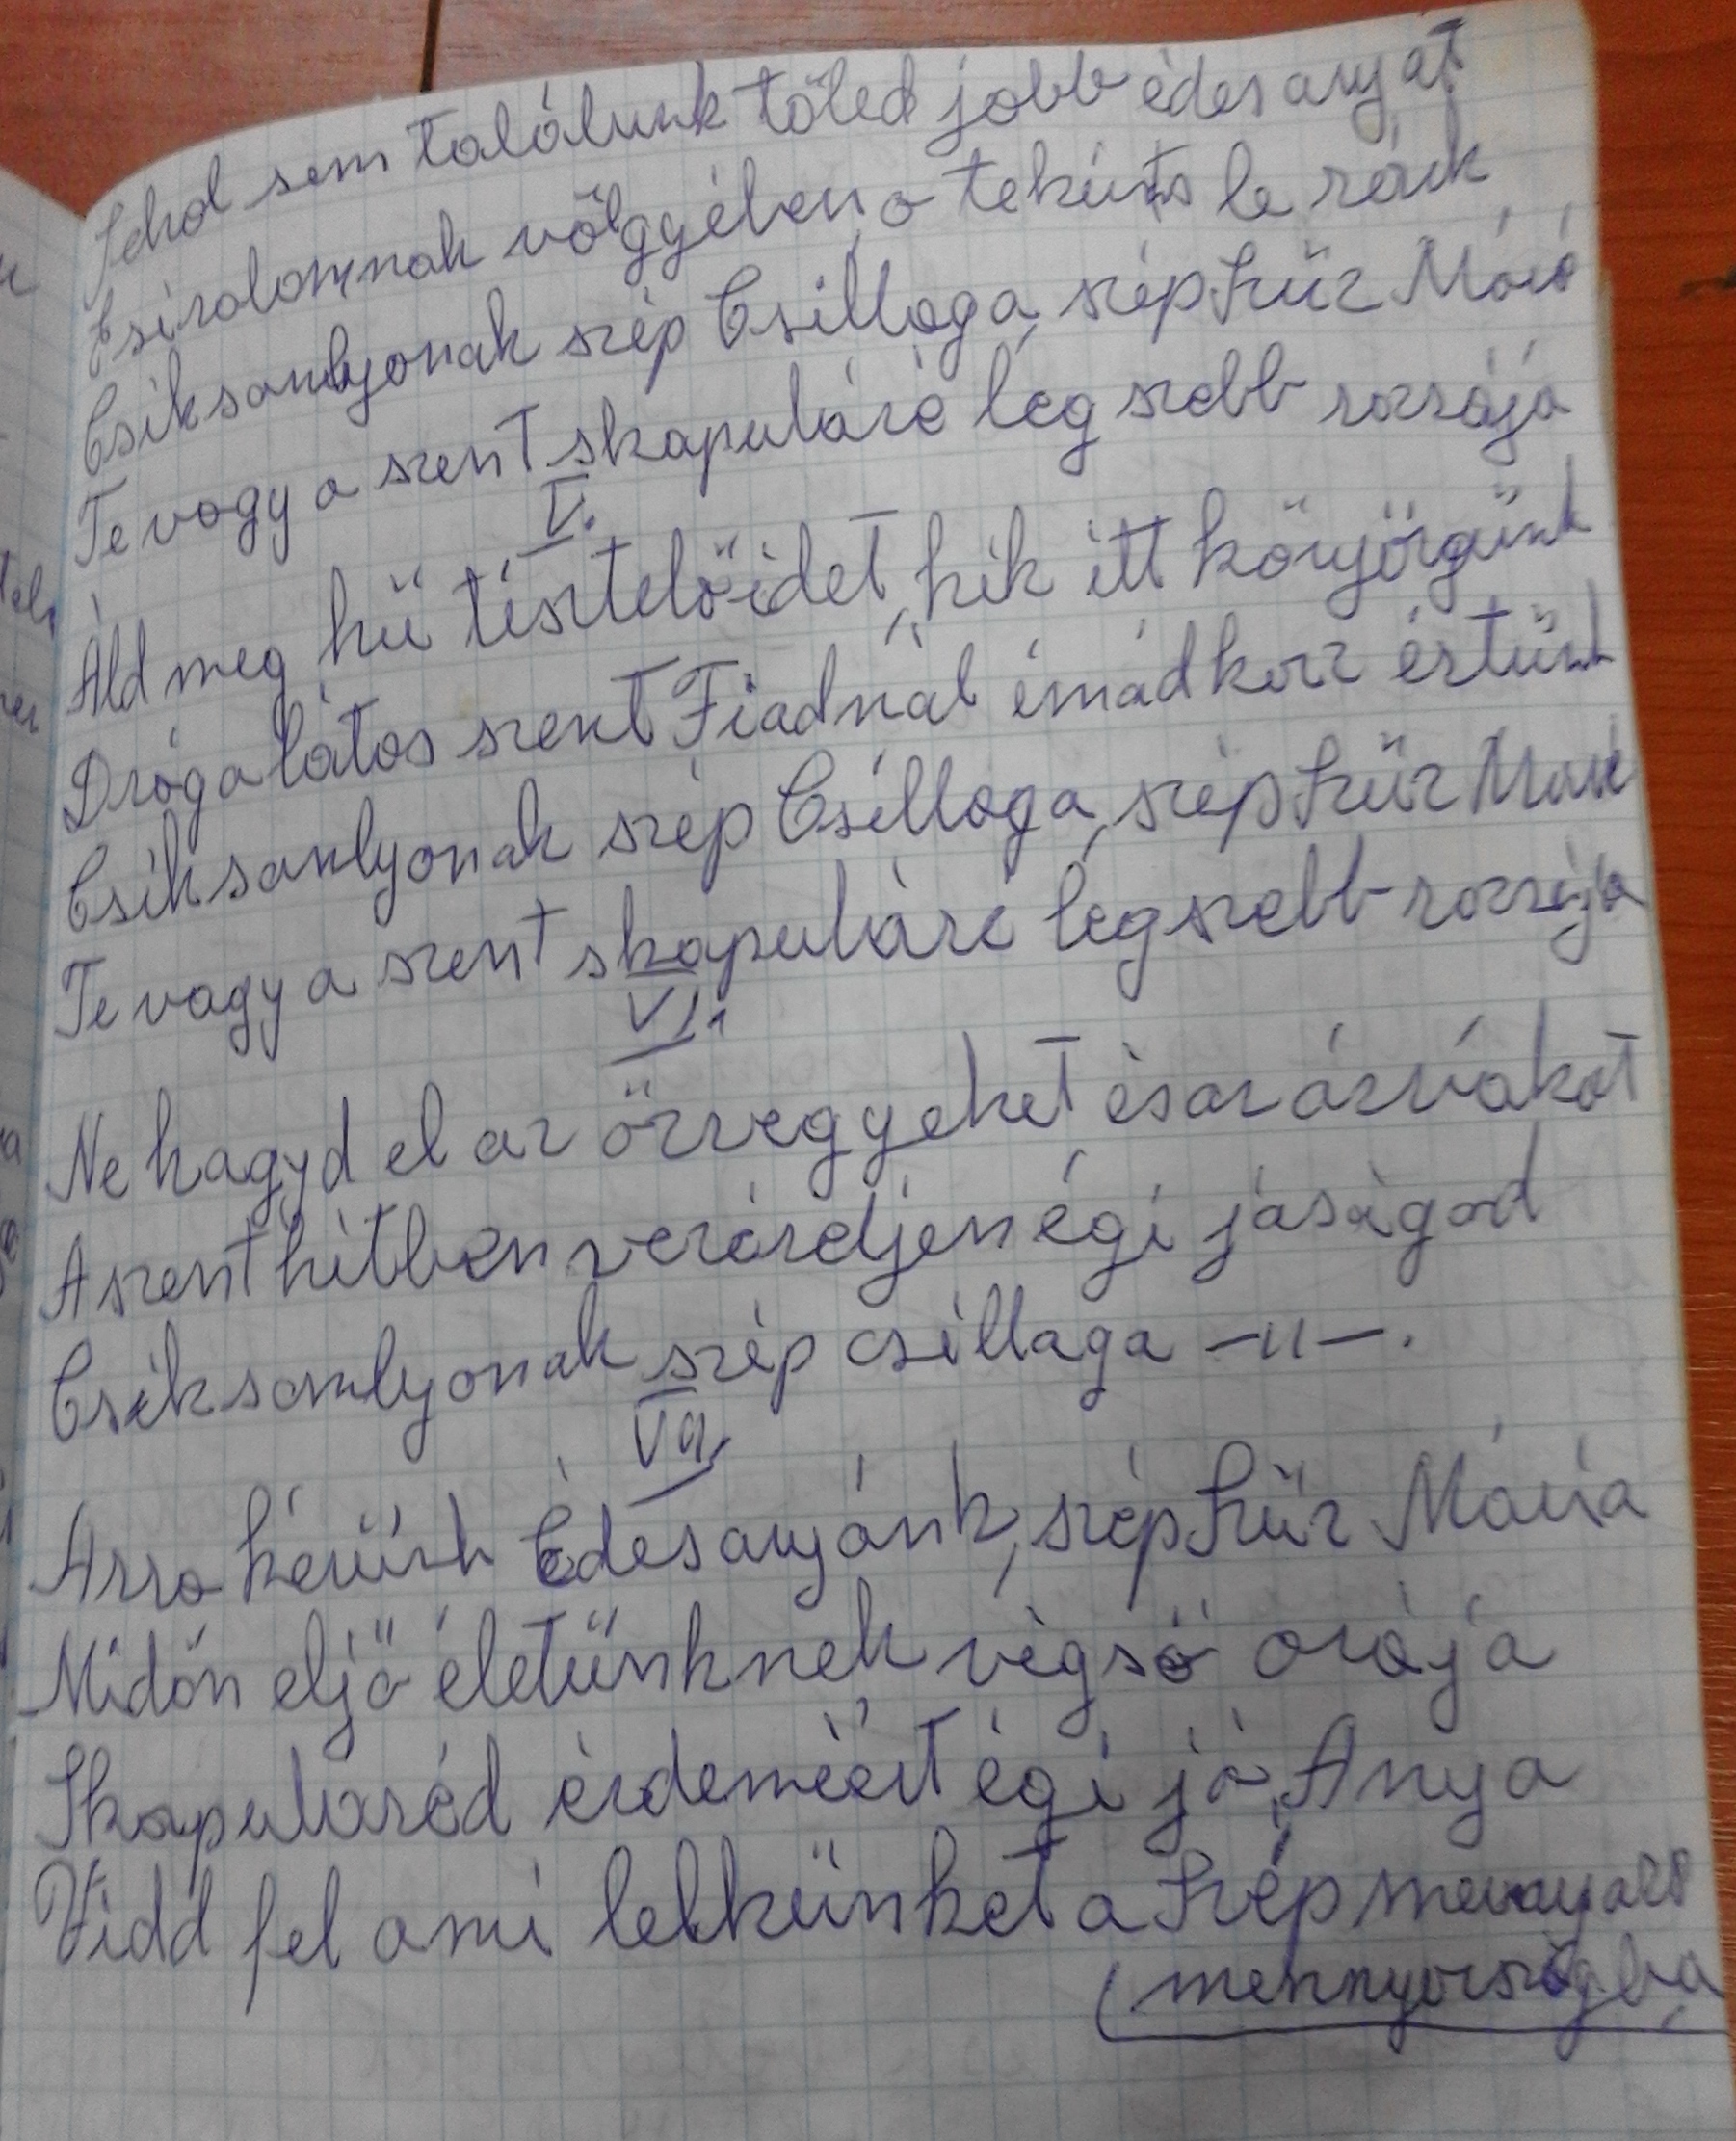 Sehol sem találunk tőled jobb édesanyát
E siralomnak völgyében, o tekints le reánk
Csiksomlyonak szép Csillaga, szép Szűz Mária
Te vagy a szent skapuláré leg szebb rozsája
V.
Áld meg hü tisztelőidet, kik itt könyörgünk
Drágalátos szent Fiadnál imádkozz értünk
Csiksomlyonak szép Csillaga, szép Szűz Mária
Te vagy a szent skapuláré legszebb rozsája
VI.
Ne hagyd el az özvegyeket és az árvákat
A szent hitben vezéreljen égi jóságod
Csiksomlyonak szép csillaga -11-.
VII.
Arra kérünk Édesanyánk, szép Szűz Mária
Midőn eljö életünknek végső orája
Skapuláréd érdeméért égi jó Anya
Vidd fel a mi lelkünket a Szép
mennyországba